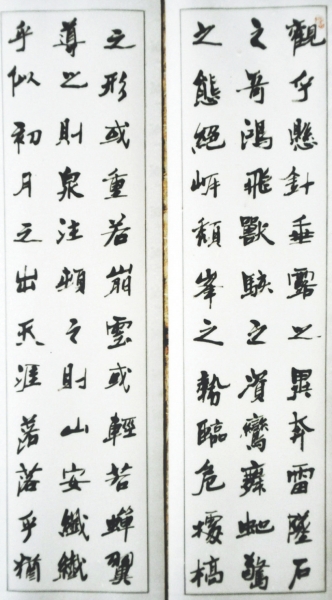 觀乎懸針垂露之異奔雷墜石
之奇鴻飛獸駭之資鸞舞虵驚
之態絕岸頹峯之勢臨危據槁
之形或重若崩雲或輕若蟬翼
導之則泉注頓之則山安纖纖
乎似初月之出天涯落落乎猶